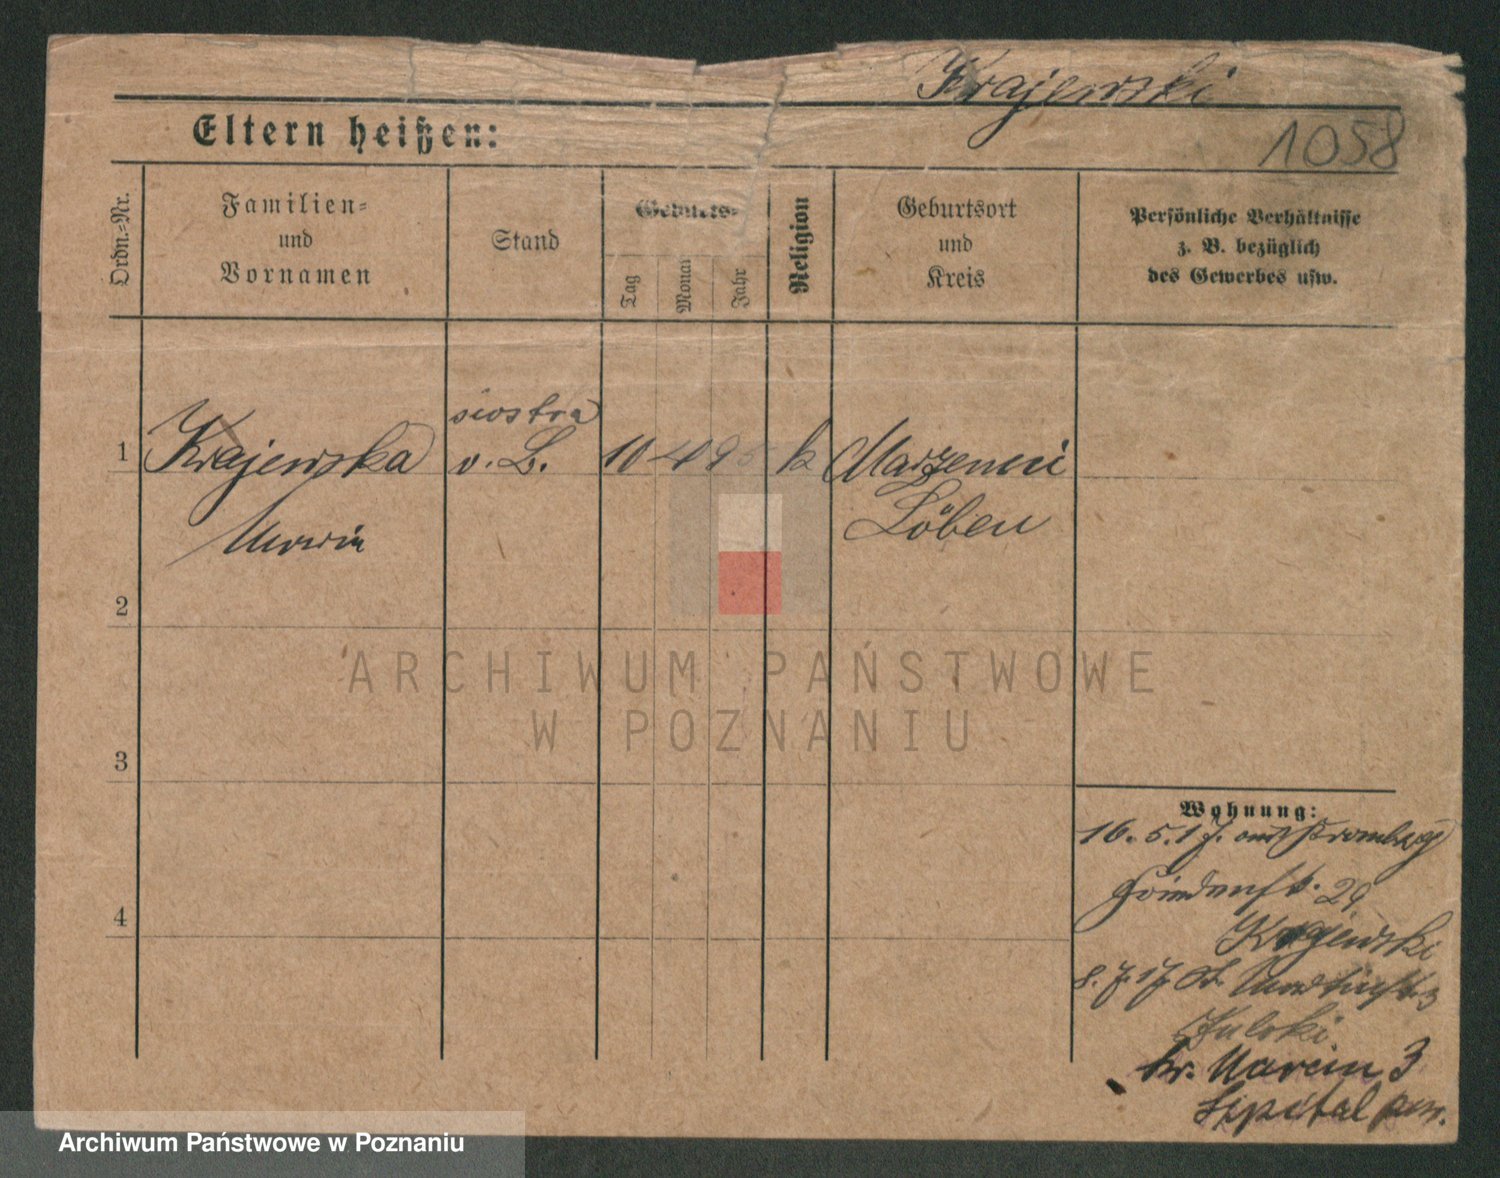 Krajewski
Eltern heißen:
1058
Ordn.-Nr.
Familien-
und
Vornamen
Stand
Geburts-
Tag
Monat
Jahr
Religion
Geburtsort
und
Kreis
Persönliche Verhältnisse
z. B. bezüglich
des Gewerbes usw.
1
Krajewska
siostra
v. L.
10 4 95
k
Löben
2
ARCHIWUM PAŃSTWOWE
W POZNANIU
3
Wohnung:
16. 5. 17. Bromberg
29
Krajewski
4
8. 7. 17 St. 3
św. Marcin 3
Szpital
Archiwum Państwowe w Poznaniu